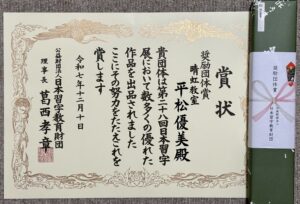 賞状
奨励団体賞
晴虹教室
平松優美殿
貴団体は第二十八回日本習字
展において数多くの優れた
作品を出品されました
ここにその努力をたたえこれを
賞します
令和七年十二月十日
公益財団法人日本習字教育財団
理事長 葛西孝章
奨励団体賞
日本習字教育財団